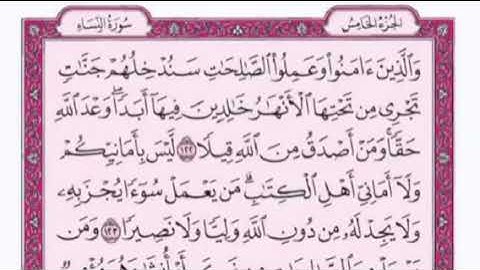 الجزء الخامس
سورة النساء
وَٱلَّذِينَ ءَامَنُوا۟ وَعَمِلُوا۟ ٱلصَّـٰلِحَـٰتِ سَنُدْخِلُهُمْ جَنَّـٰتٍ
تَجْرِى مِن تَحْتِهَا ٱلْأَنْهَـٰرُ خَـٰلِدِينَ فِيهَآ أَبَدًا ۖ وَعْدَ ٱللَّهِ
حَقًّا ۚ وَمَنْ أَصْدَقُ مِنَ ٱللَّهِ قِيلًا ١٢٢ لَّيْسَ بِأَمَانِيِّكُمْ
وَلَآ أَمَانِىِّ أَهْلِ ٱلْكِتَـٰبِ ۗ مَن يَعْمَلْ سُوٓءًا يُجْزَ بِهِۦ
وَلَا يَجِدْ لَهُۥ مِن دُونِ ٱللَّهِ وَلِيًّا وَلَا نَصِيرًا ١٢٣ وَمَن